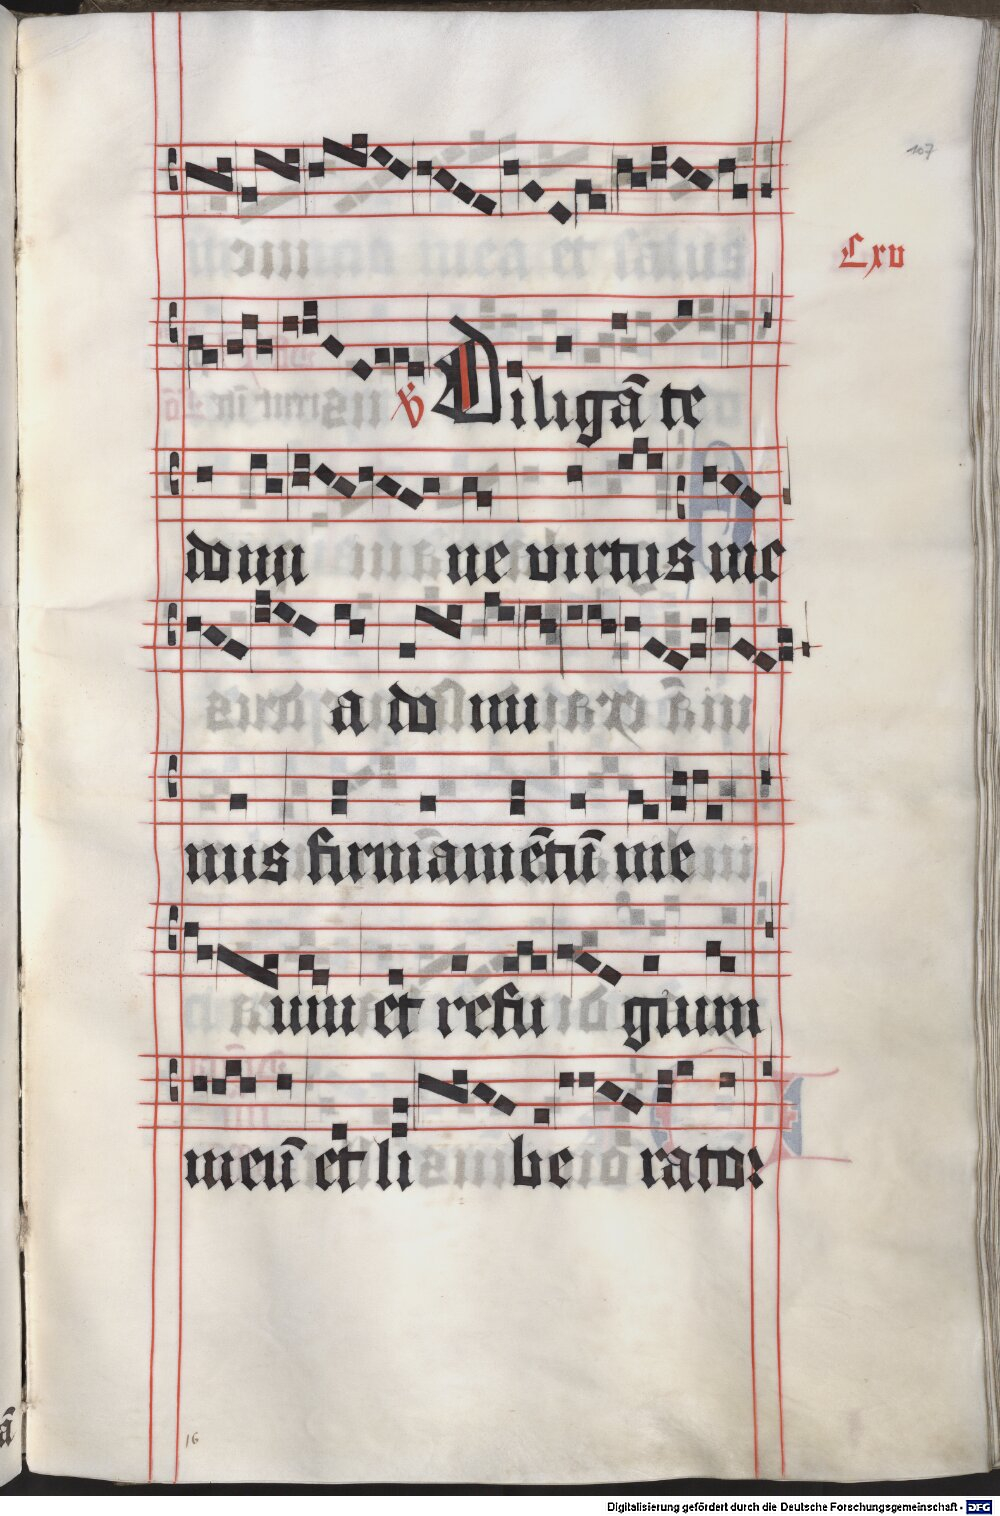 107
Lxv
℣ Diligā te
domi ne virtus me
a do mi
nus firmamētū me
um et refu gium
meū et li be rator
16
ā
Digitalisierung gefördert durch die Deutsche Forschungsgemeinschaft - DFG